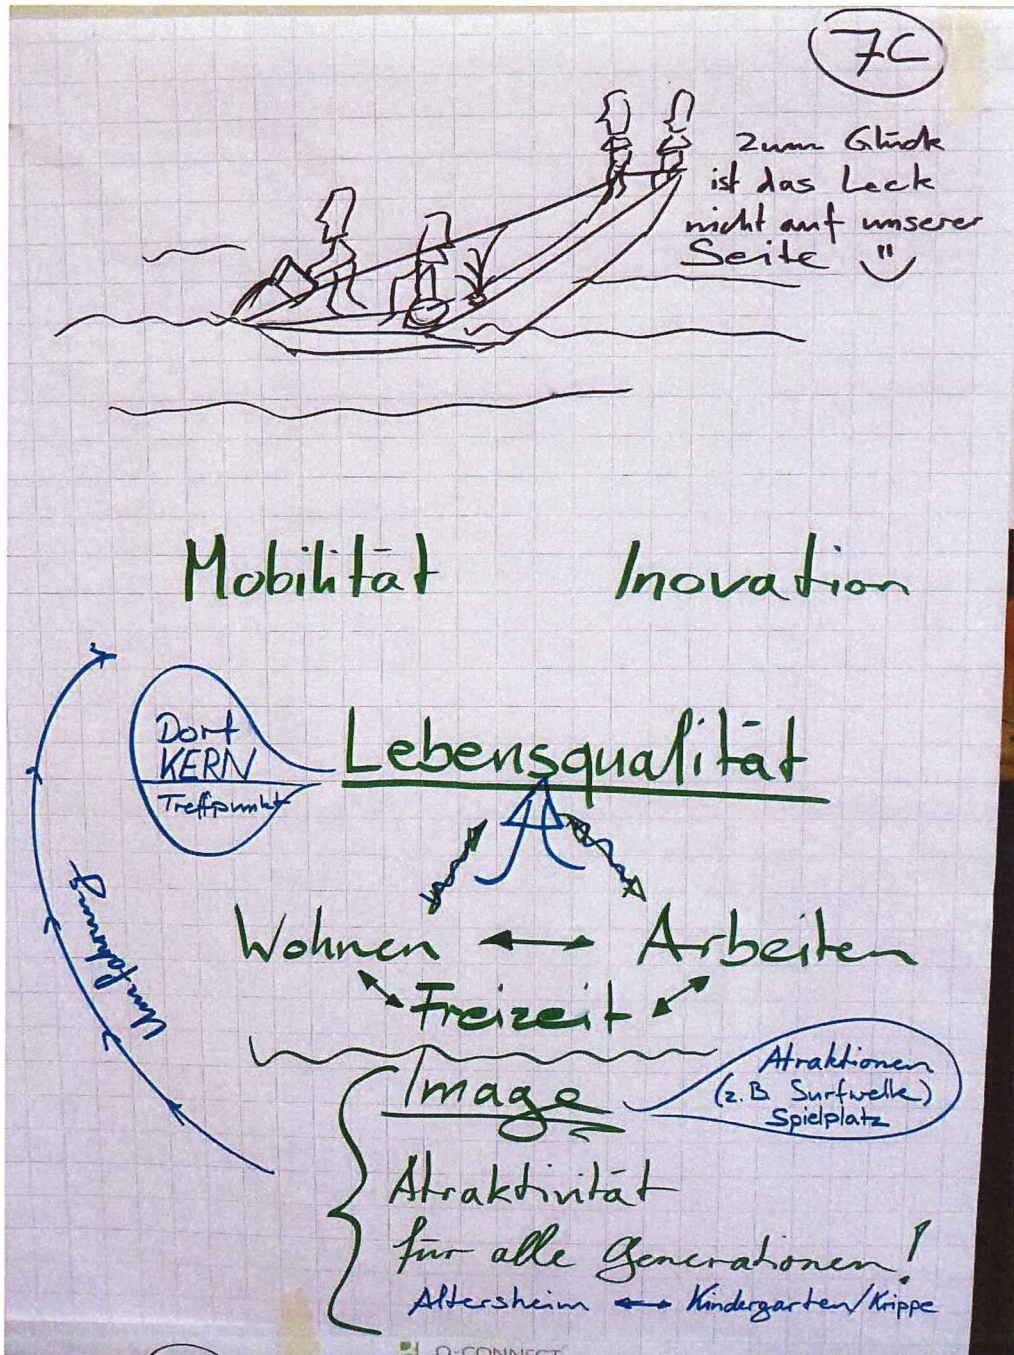 7C
Zum Glück
ist das Leck
nicht auf unserer
Seite
Mobilität
Inovation
Dorf
KERN
Treffpunkt
Lebensqualität
Umfahrung
Wohnen
Arbeiten
Freizeit
Image
Atraktionen
(z.B. Surfwelle)
Spielplatz
Atraktivität
für alle Generationen!
Altersheim ↔ Kindergarten/Krippe
Q-CONNECT